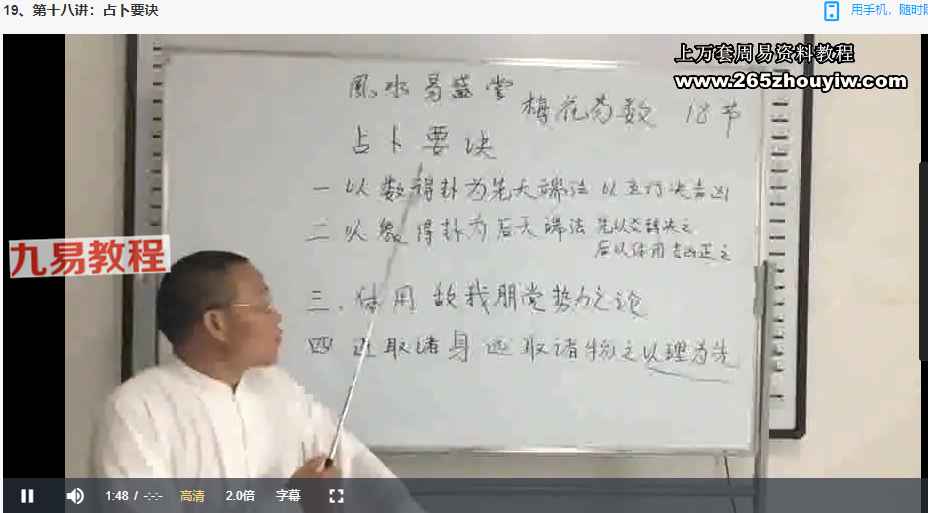 19、第十八讲：占卜要诀
用手机，随时
上万套周易资料教程
www.265zhouyiw.com
風水易盛堂
梅花易数 18节
占卜要诀
一 以数得卦为先天端法 以五行决吉凶
二 以象得卦为后天端法 先以爻辞决之
后以体用吉凶正之
三、体用 敌我朋党势力之论
四 近取诸身 远取诸物之以理为先
九易教程
1:48 / -:-:-
高清
2.0倍
字幕